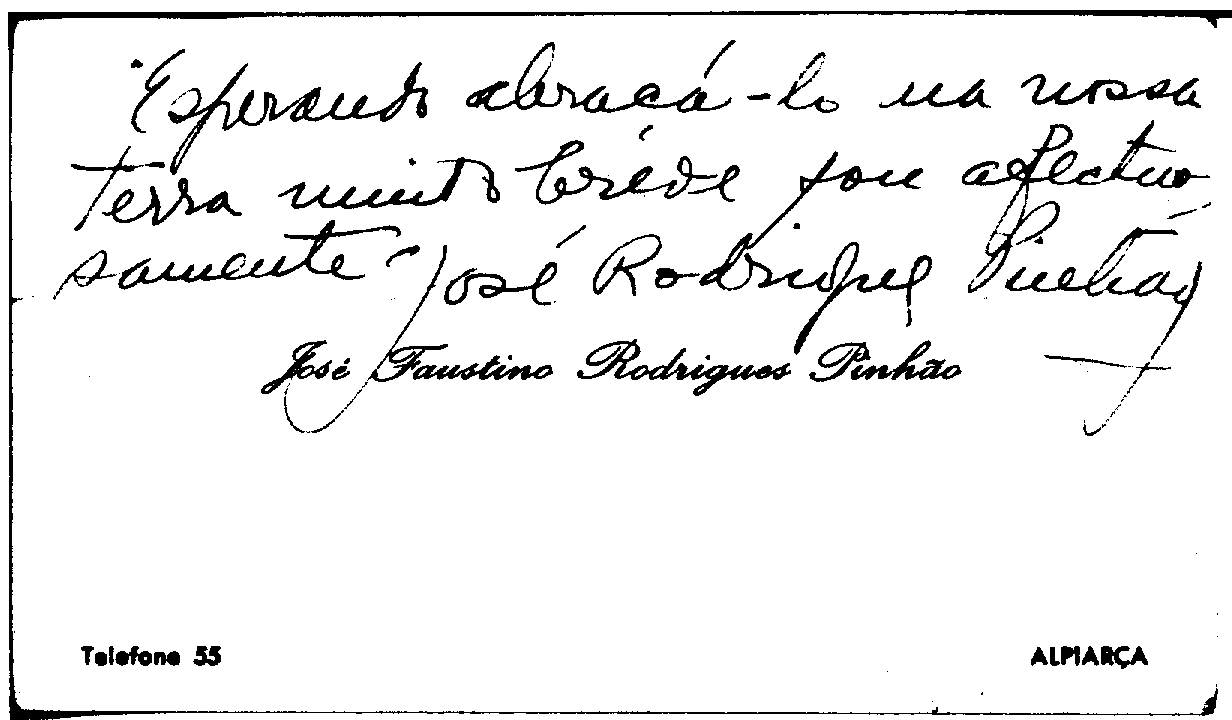 "Esperando abraçá-lo na nossa
terra muito bréve sou afectuo
samente" José Rodrigues Pinhão
José Faustino Rodrigues Pinhão
Telefone 55
ALPIARÇA